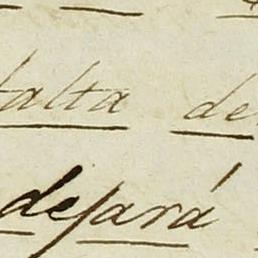 falta de
dejará